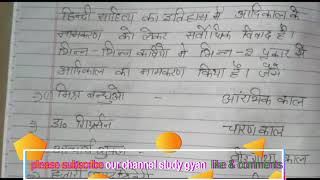 हिन्दी साहित्य का इतिहास में आदिकाल के
नामकरण को लेकर सर्वाधिक विवाद है।
भिन्न-भिन्न कवियों ने भिन्न-2 प्रकार से
आदिकाल का नामकरण किया है। जैसे
मिश्र बन्धुओ आरंभिक काल
डा० ग्रियर्सन चारण काल
आचार्य शुक्ल
please subscribe our channal study gyan like & comments